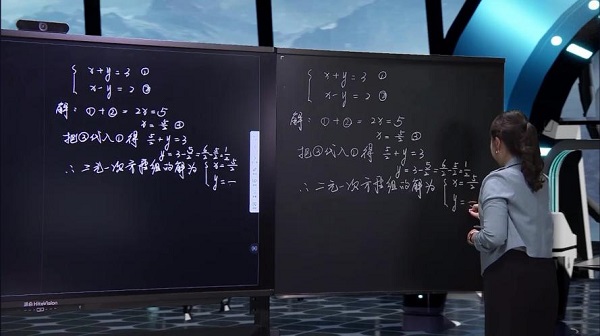 x+y=3 ①
x-y=2 ②
解：①+②=2x=5
x=5/2 ③
把③代入①得 5/2+y=3
y=3-5/2=6/2-5/2=1/2
∴二元一次方程组的解为 { x=5/2
y=—
HiteVision
x+y=3 ①
x-y=2 ②
解：①+②=2x=5
x=5/2 ③
把③代入①得 5/2+y=3
y=3-5/2=6/2-5/2=1/2
∴二元一次方程组的解为 { x=5/2
y=